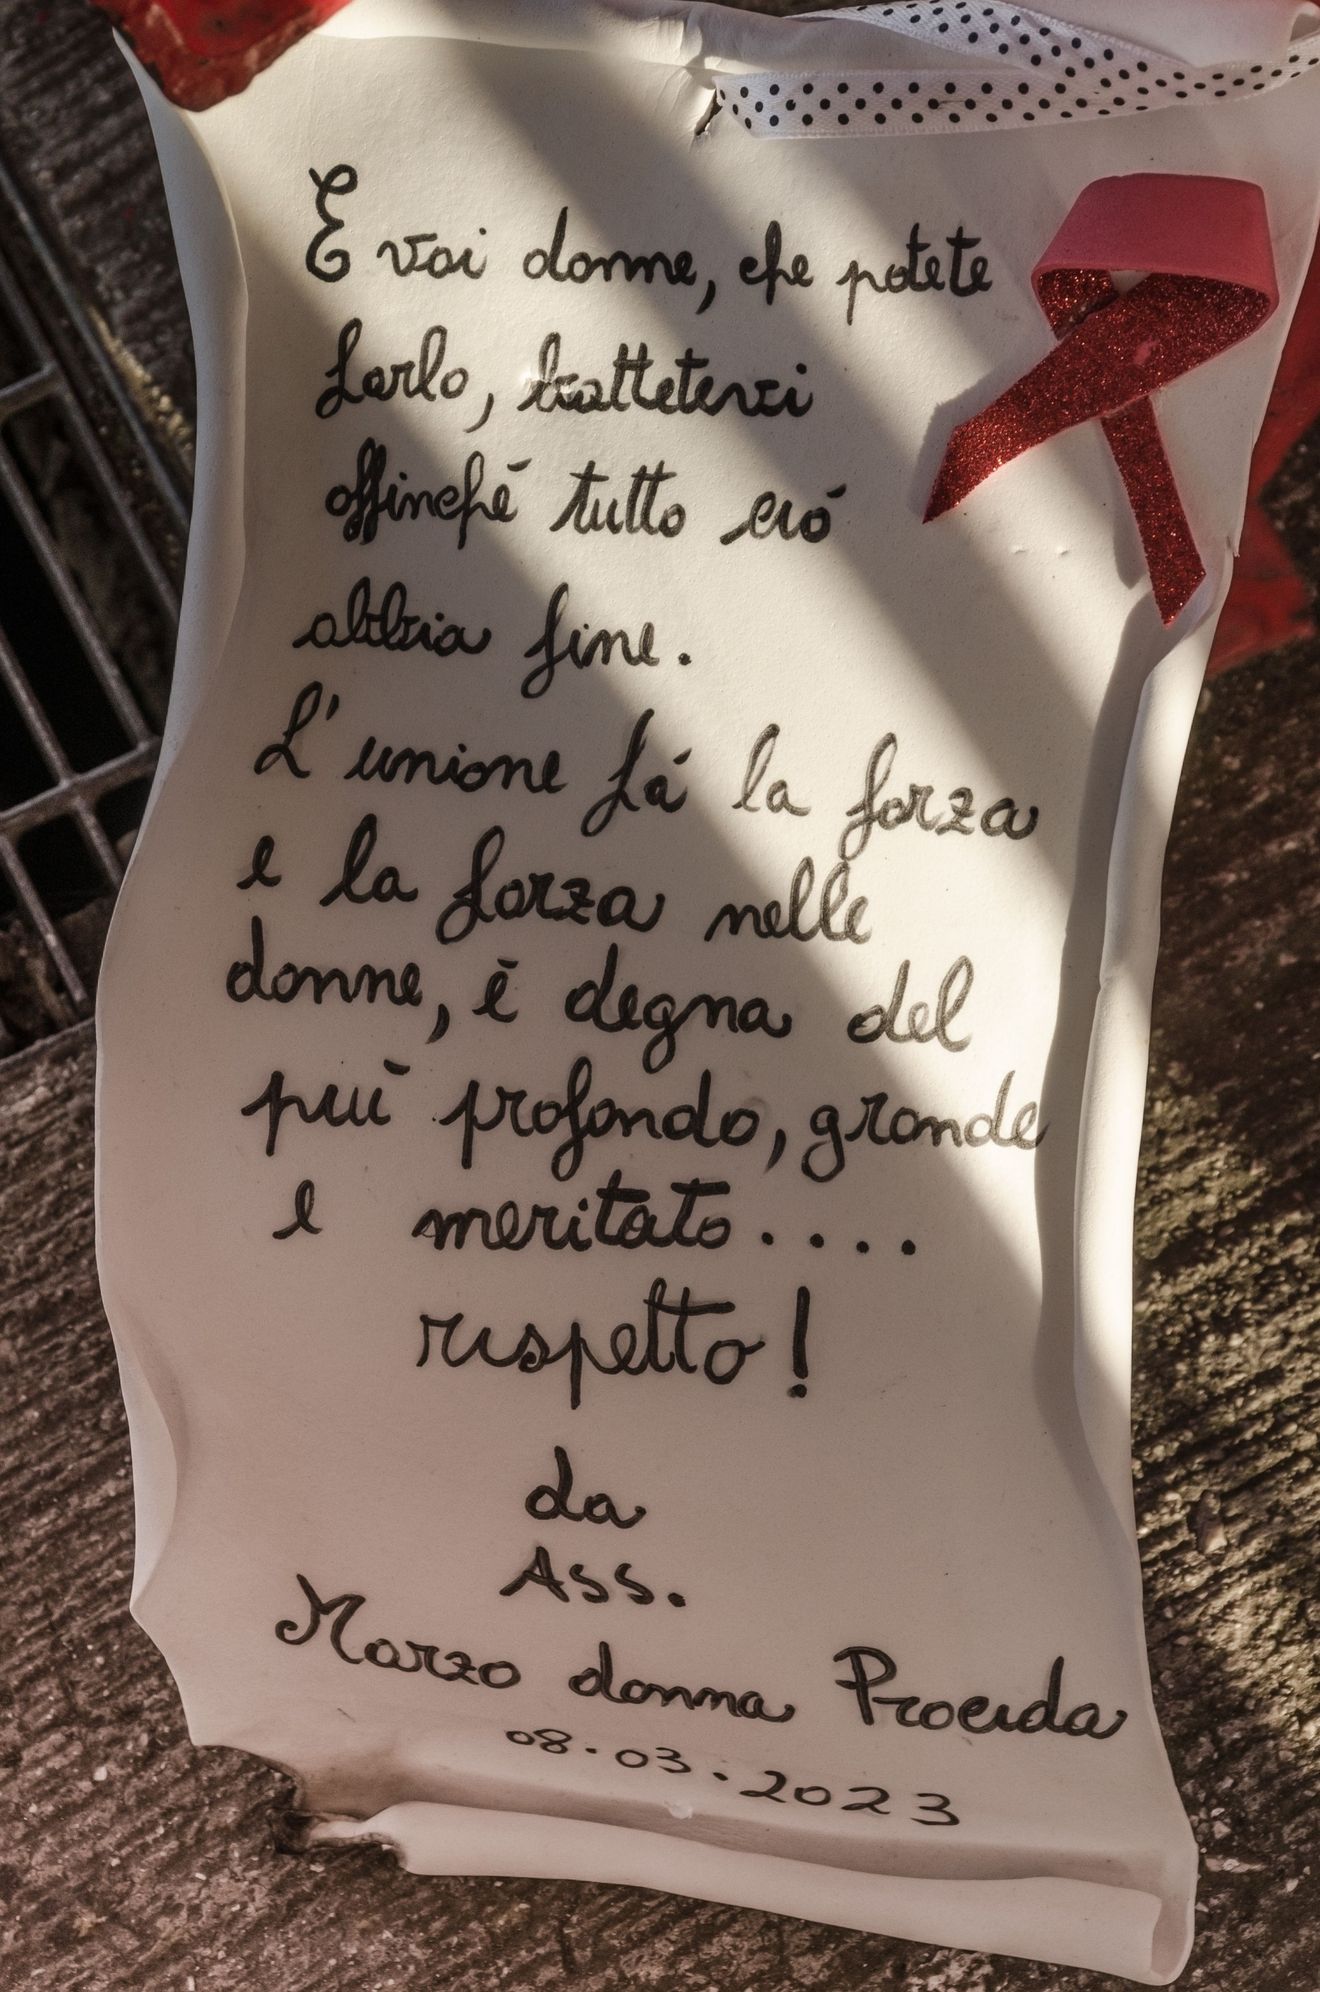 E voi donne, che potete
farlo, battetevi
affinchē tutto ció
abbia fine.
L'unione fá la forza
e la forza nelle
donne, ē degna del
piū profondo, grande
e meritato....
rispetto!
da
Ass.
Marzo donna Procida
08.03.2023